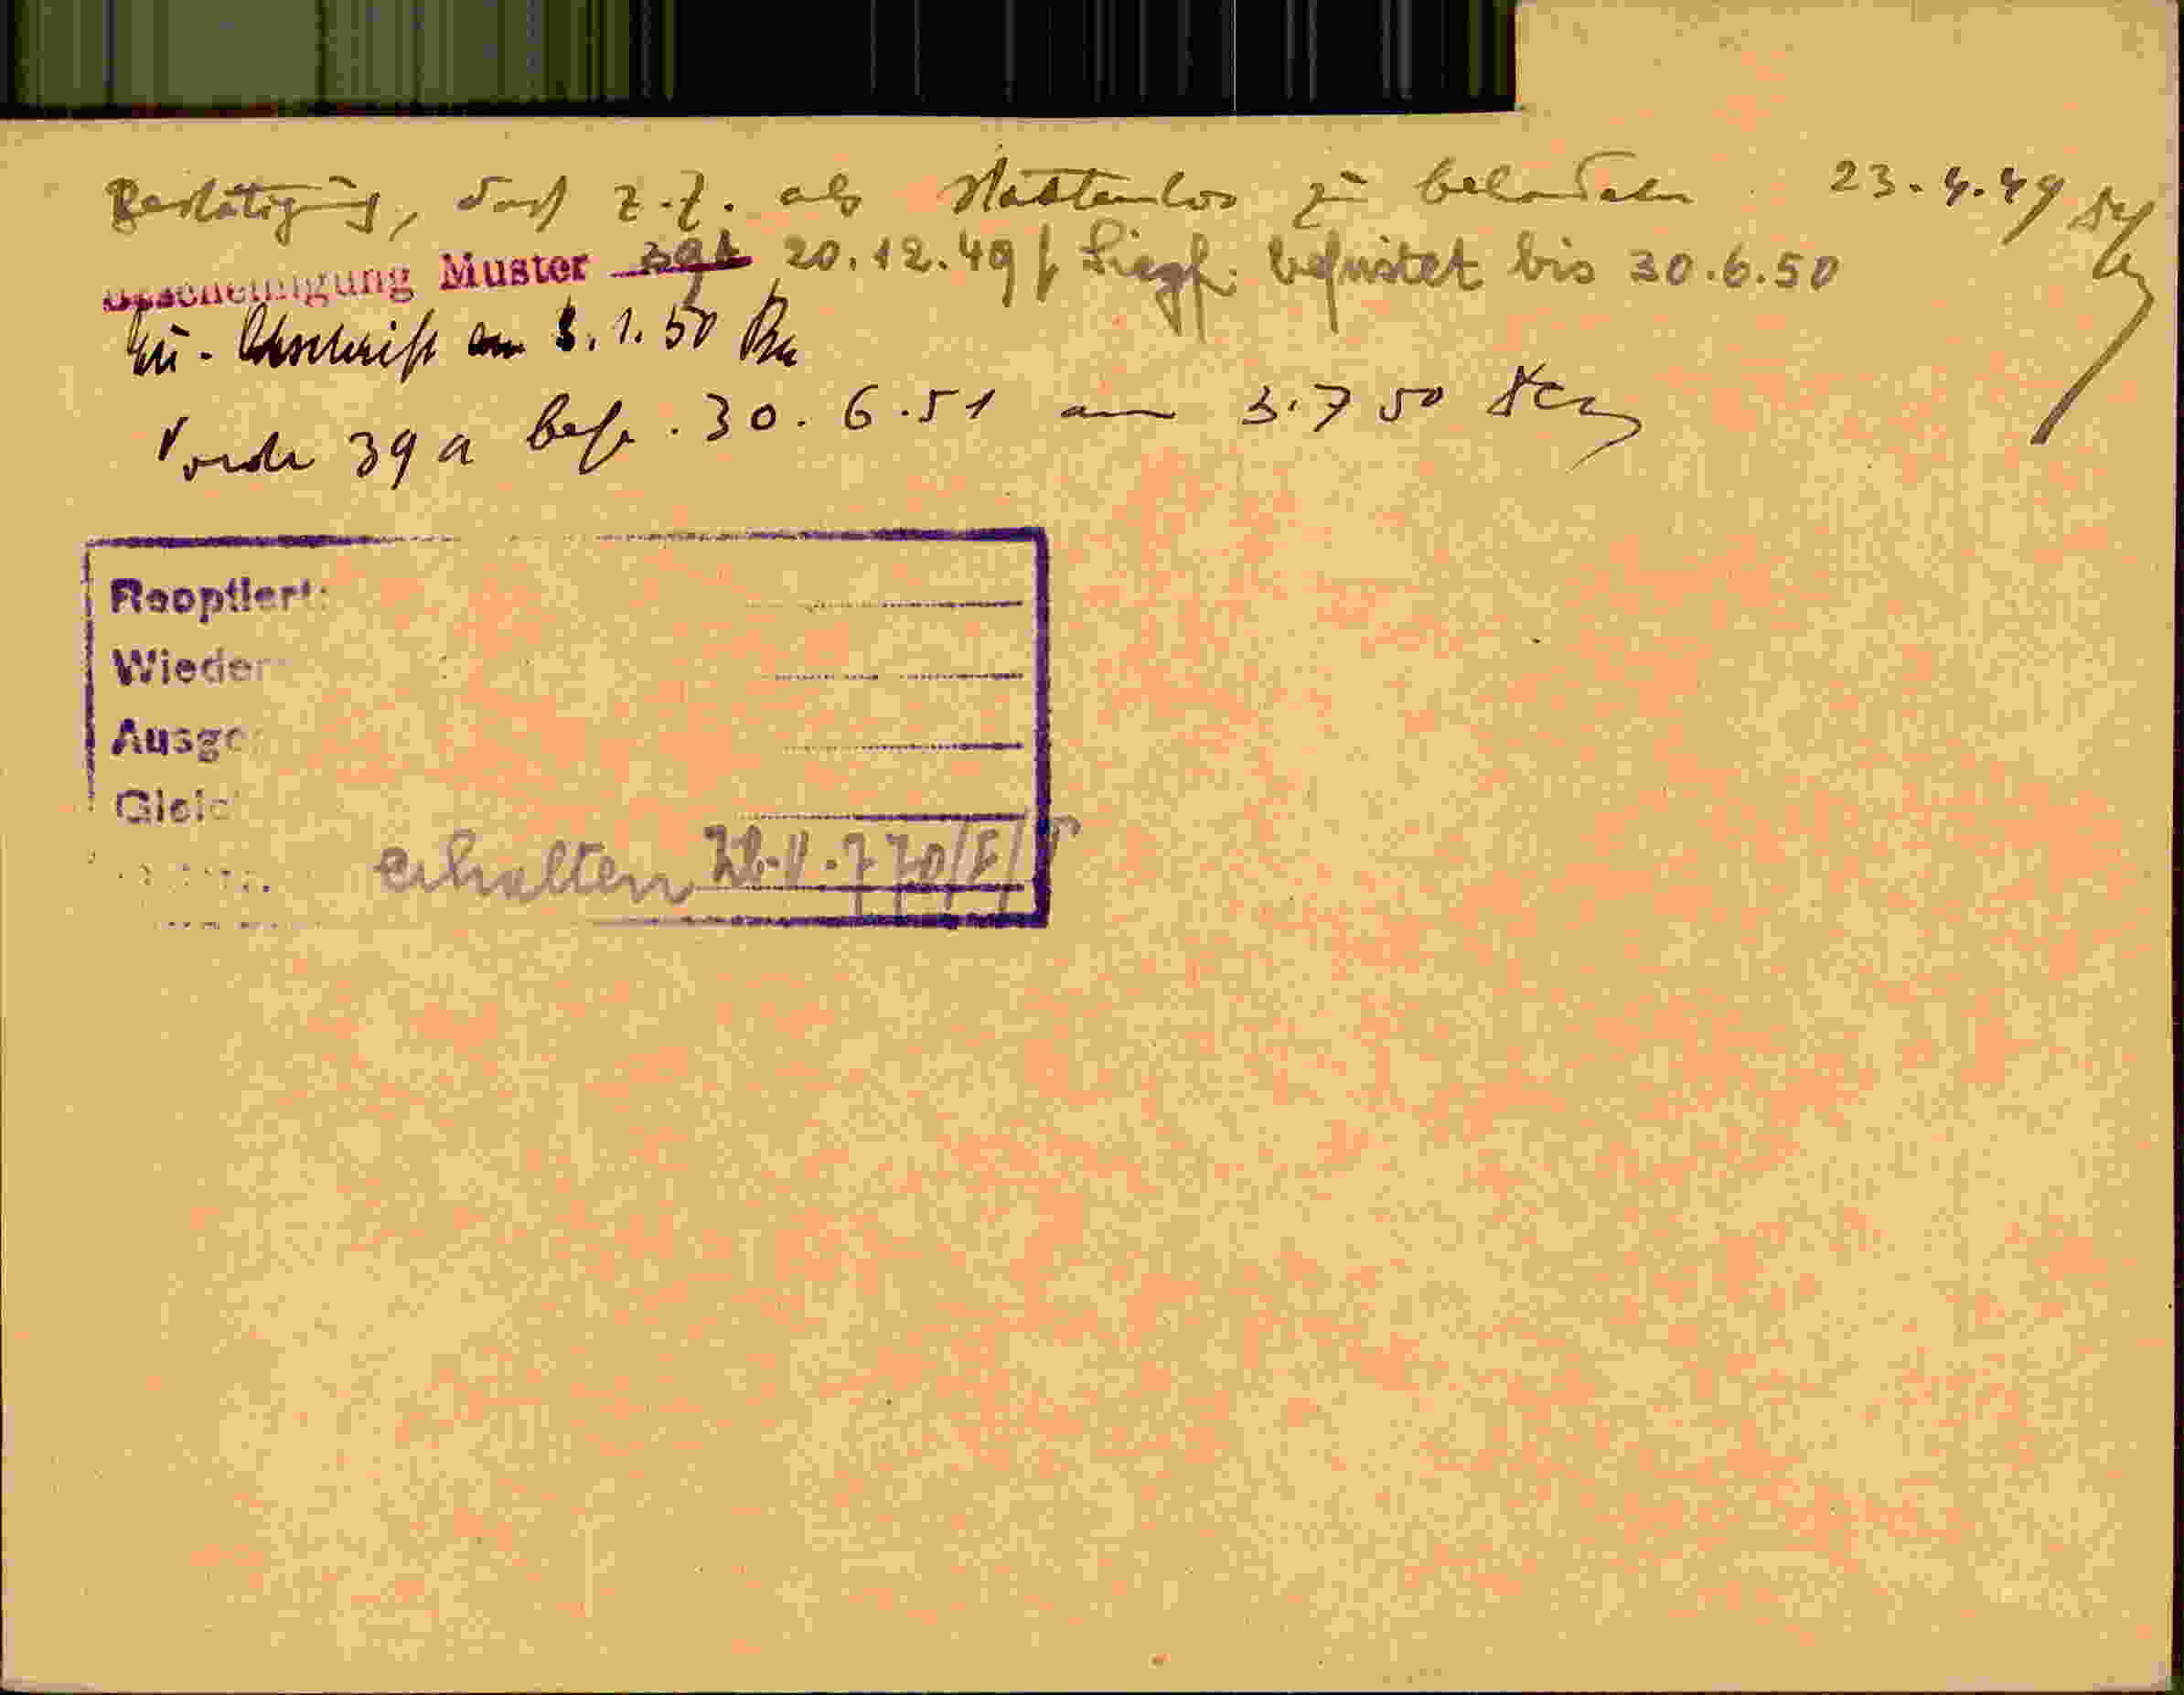 Bestätigung, daß z.Z. als staatenlos zu behandeln 23.4.49
Bescheinigung Muster 39a 20.12.49 befristet bis 30.6.50
Abschrift am 3.1.50
Vordr 39 a befr. 30.6.51 am 3.7 50
Reoptiert:
Wieder
Ausge
Gleic
erhalten